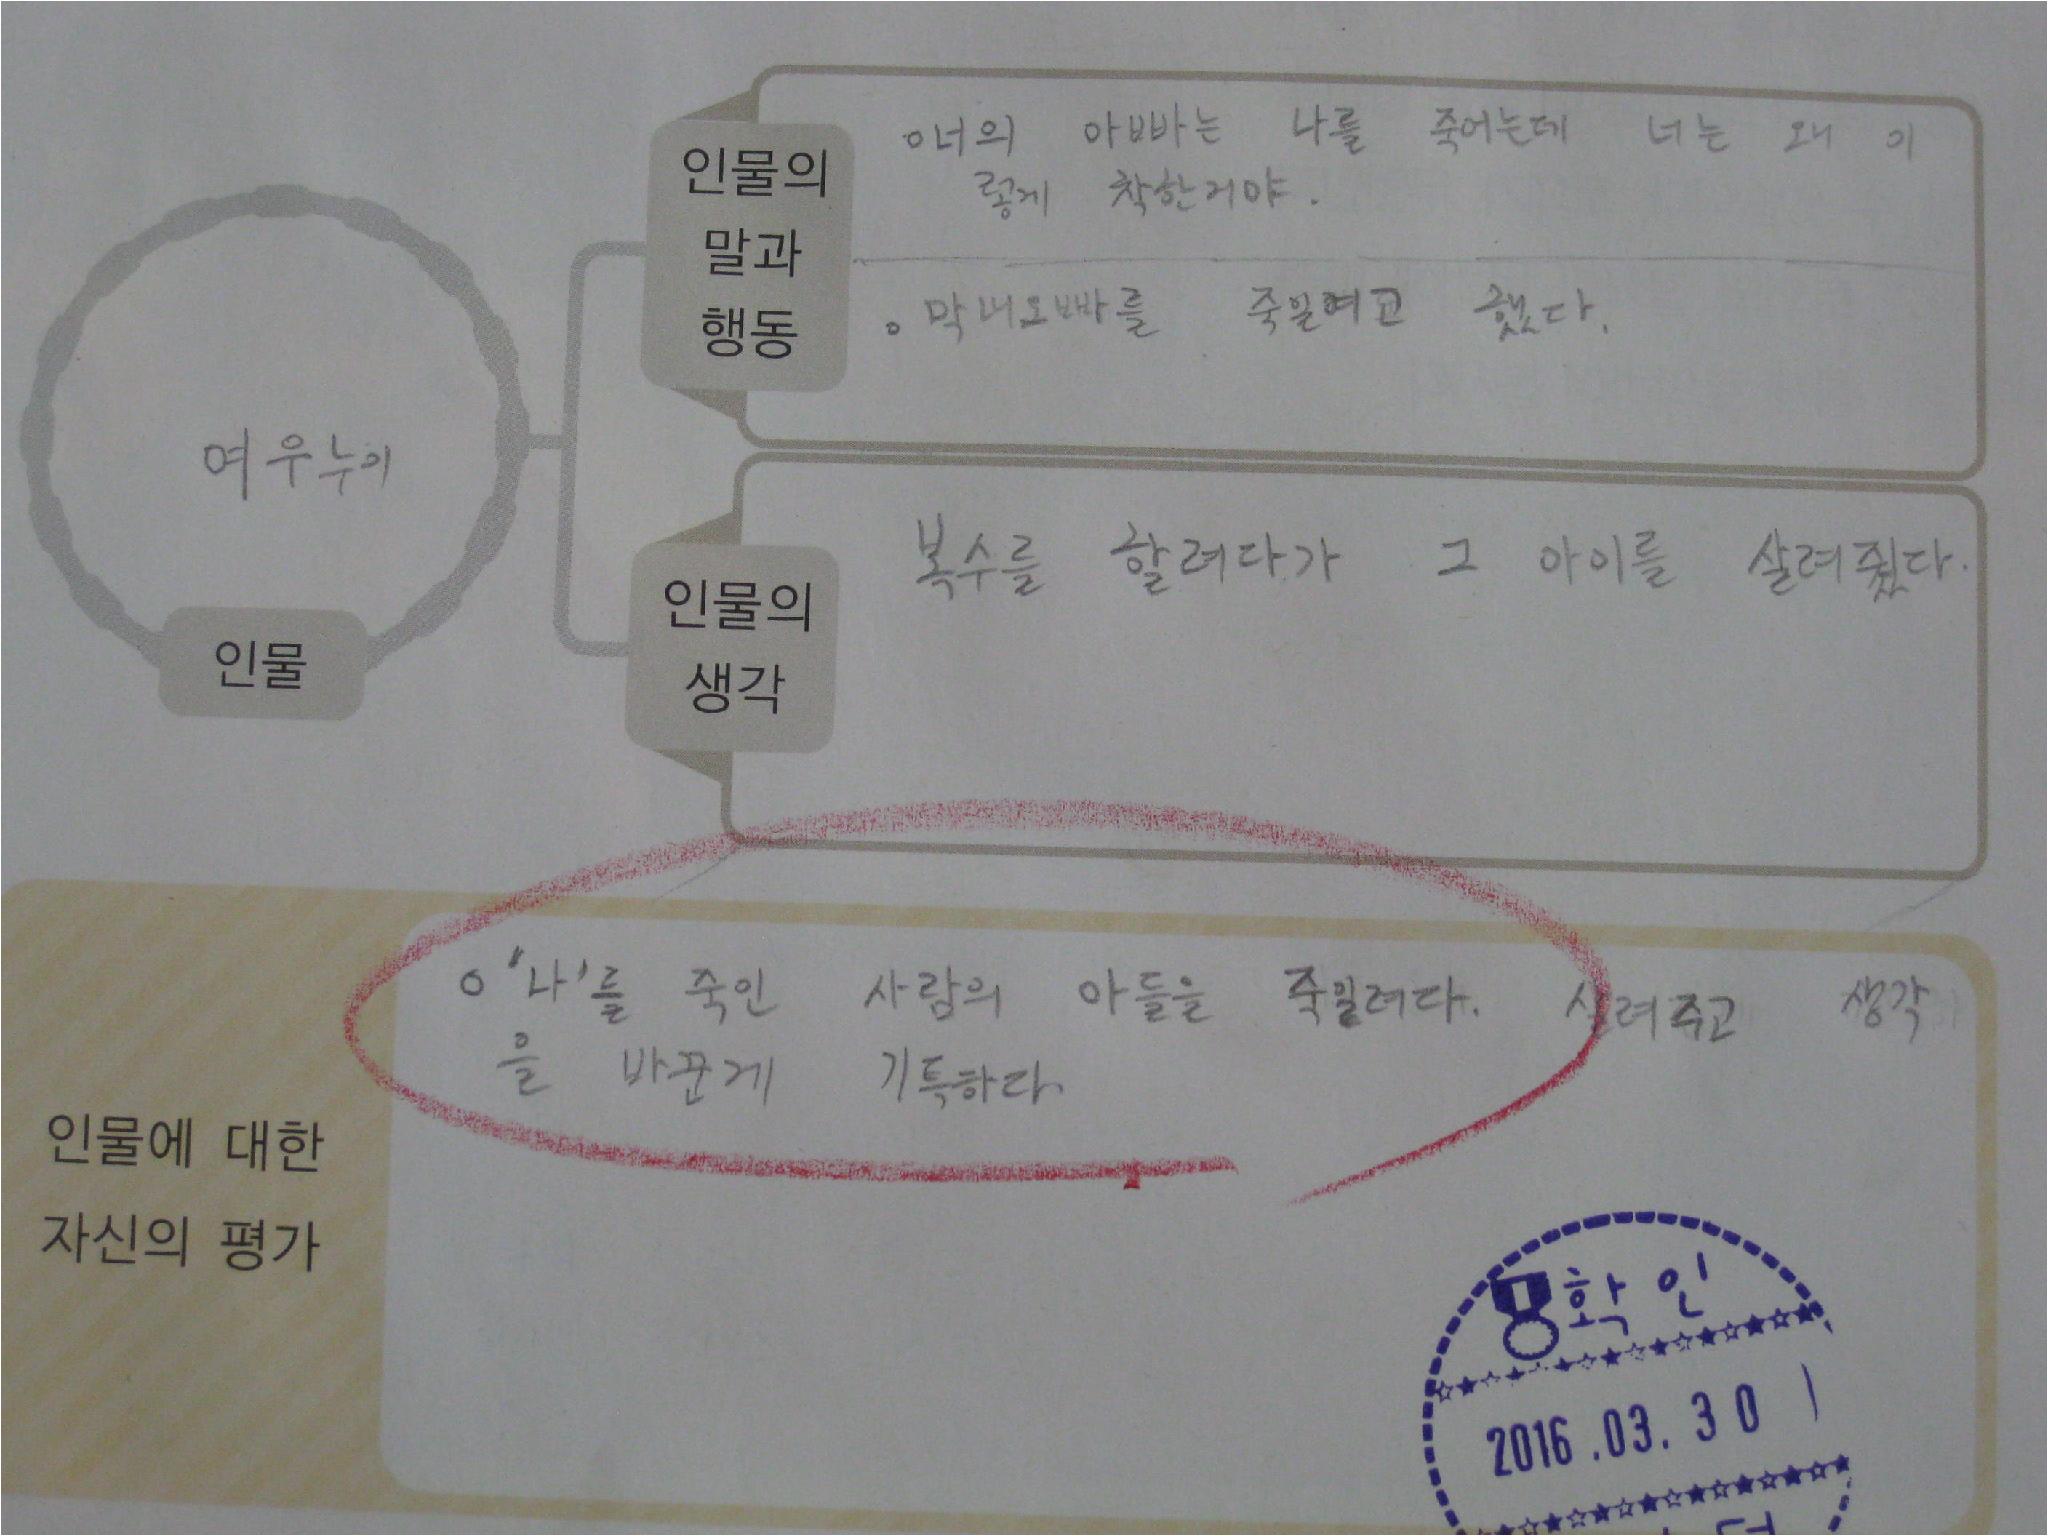 인물의
말과
행동
ㅇ너의 아빠는 나를 죽어는데 너는 왜 이
렇게 착한거야.
ㅇ막내오빠를 죽일려고 했다.
여우누이
인물
인물의
생각
복수를 할려다가 그 아이를 살려줬다.
인물에 대한
자신의 평가
ㅇ'나'를 죽인 사람의 아들을 죽일려다. 살려주고 생각
을 바꾼게 기특하다.
확인
2016.03.30